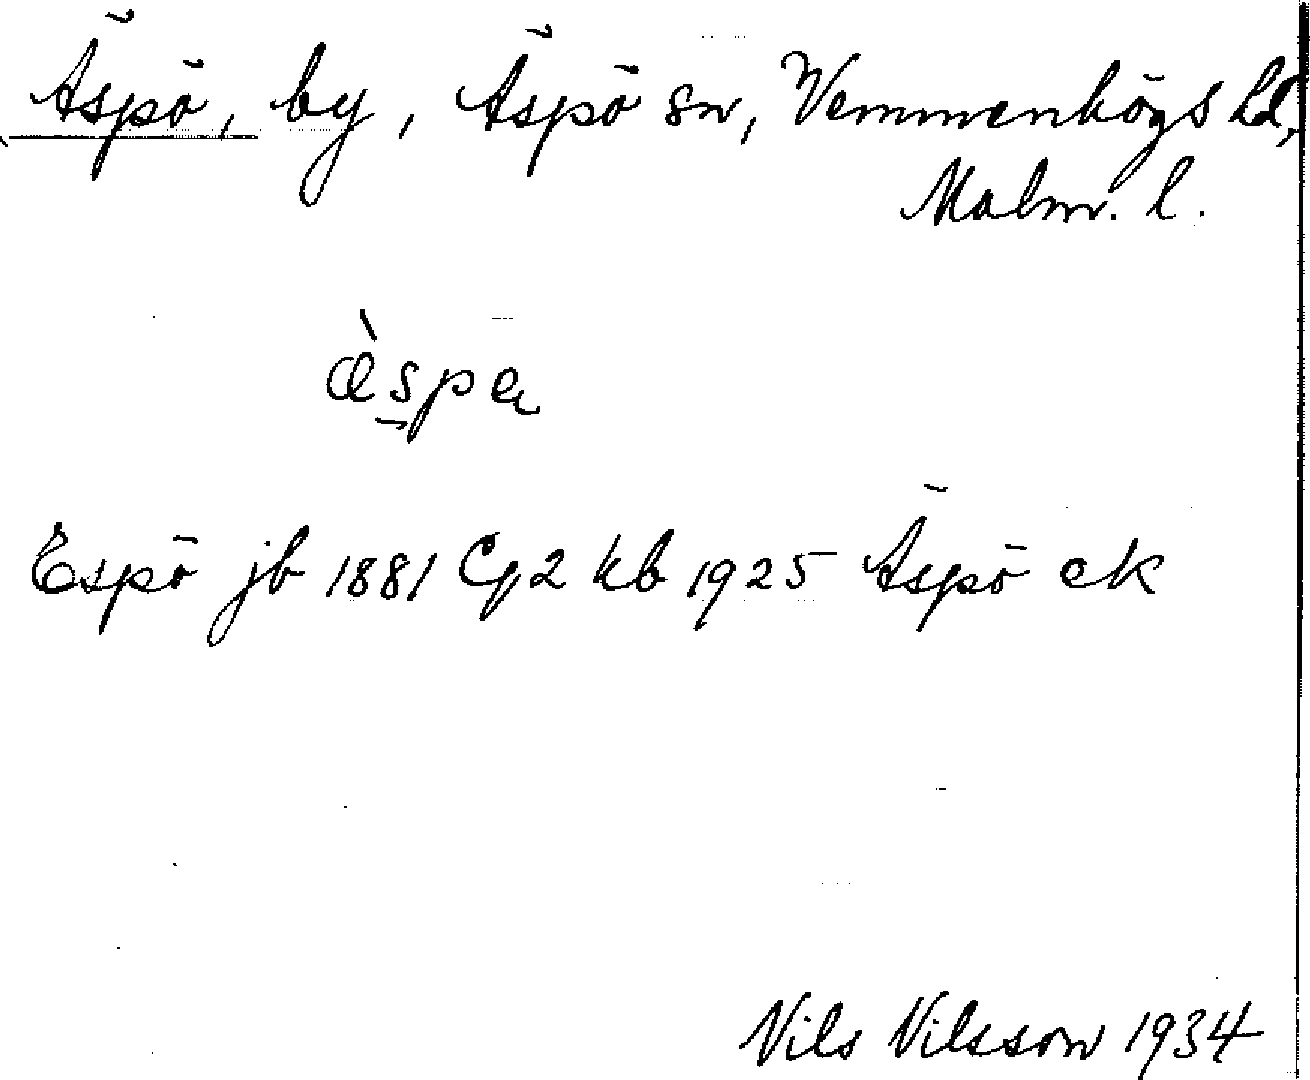 Äspö, by, Äspö sn, Vemmenhögs hd,
Malm. l.
æ̀s̱pa
Espö jb 1881 Cg2 kb 1925 Äspö ek
Nils Nilsson 1934